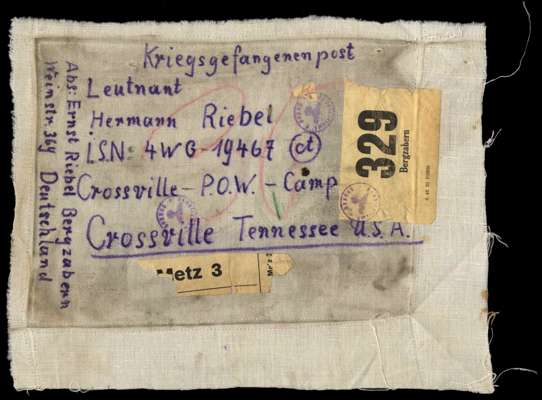 Kriegsgefangenenpost
Leutnant
Hermann Riebel
I.S.N. 4WG-19467 ct
Crossville-P.O.W.-Camp
Crossville Tennessee U.S.A.
Abs: Ernst Riebel Bergzabern
Weinstr. 364 Deutschland
329
Bergzabern
Metz 3